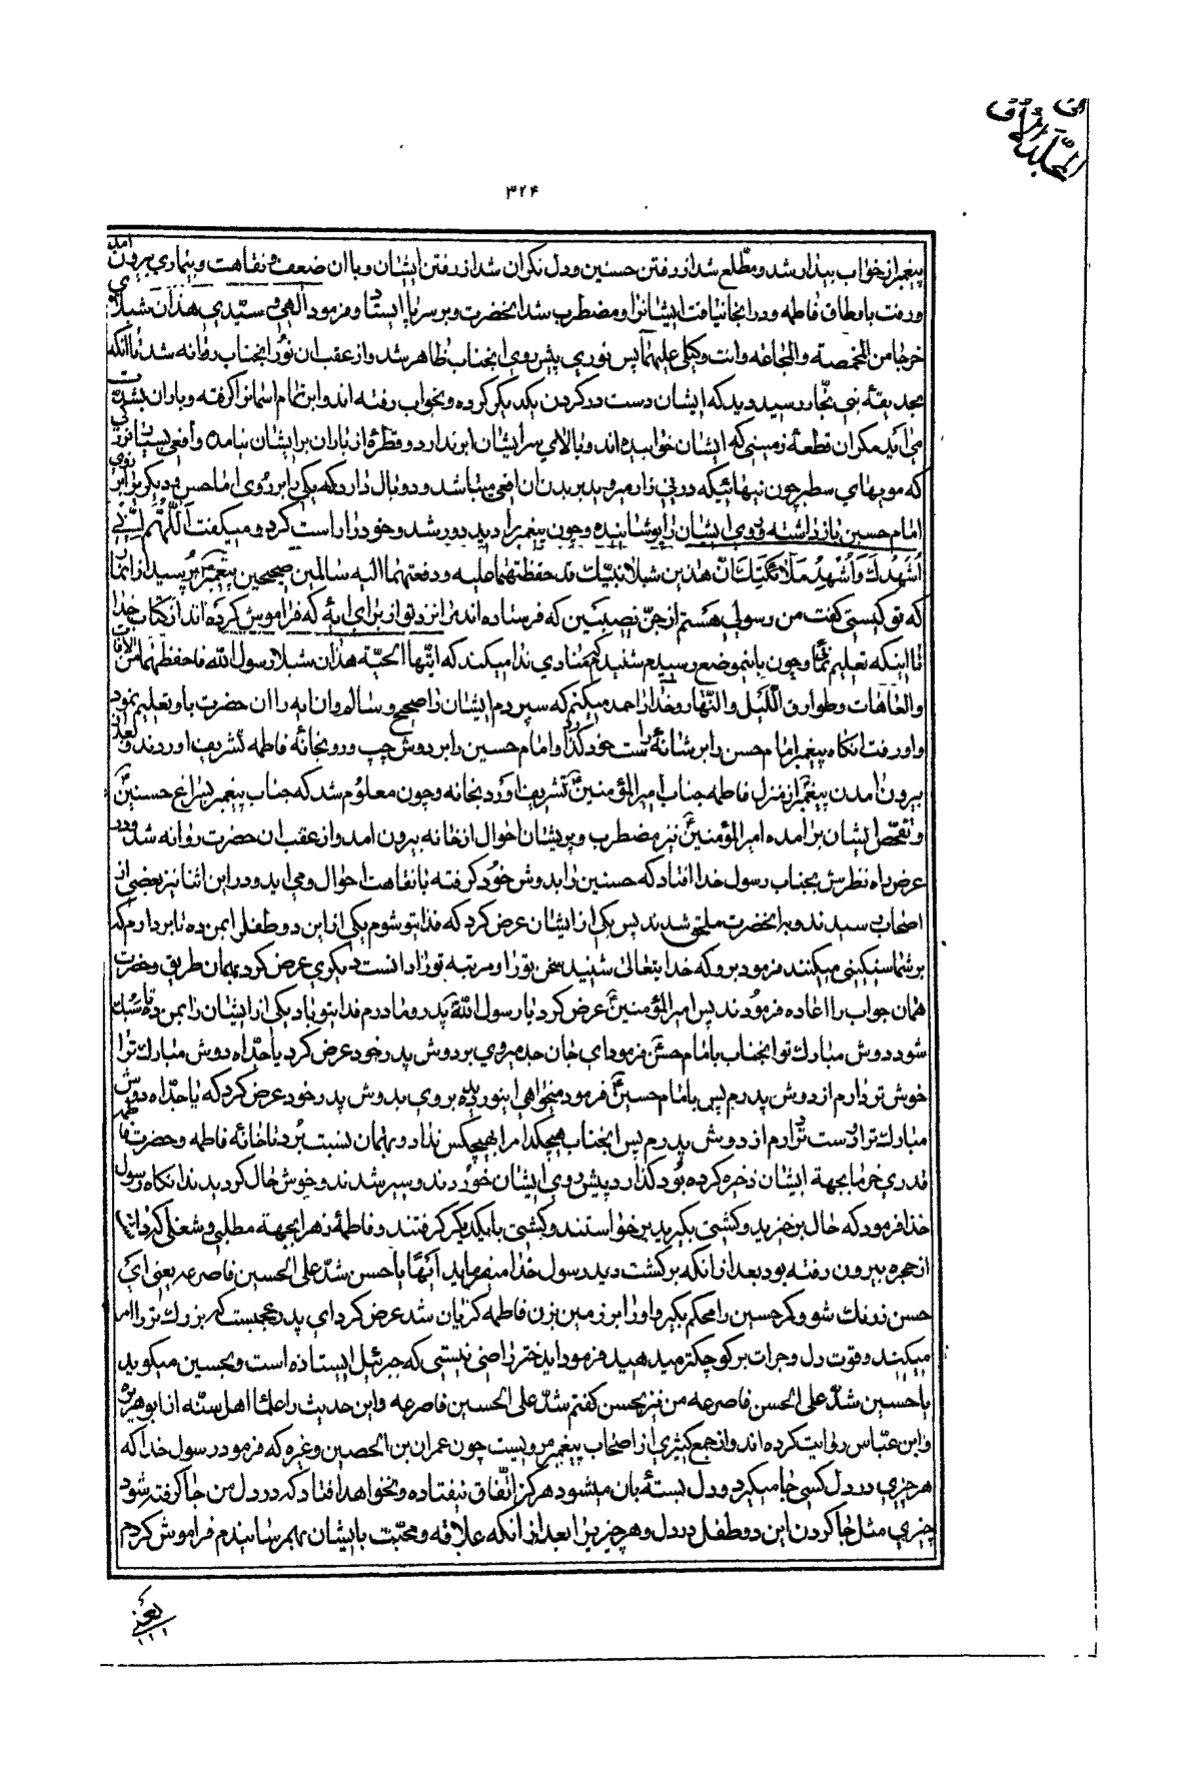 في
المجلد الاول
۳۲۴
پیغمبر از خواب بیدار شد و مطلع شد از رفتن حسنین و دل نکران شد از رفتن ایشان و با ان ضعف و نقاهت و بیماری بیرون آمد
و رفت باوطاق فاطمه و در انجا نیافت ایشانرا و مضطرب شد انحضرت و بر سر پا ایستاد و فرمود الهی و سیدی هذان شبلای
خرجا من المخمصة و المجاعة و انت وکیلی علیهما پس نوری پیش روی انجناب ظاهر شد و از عقب ان نور انجناب روانه شد تا انکه
بحدیقهٔ بنی نجار رسید دید که ایشان دست در کردن یکدیکر کرده و بخواب رفته اند و ابر تمام اسمانرا کرفته و باران بشدت
می آید مکر ان قطعهٔ زمینی که ایشان خوابیده اند و بالای سر ایشان ابر ندارد و قطرهٔ از باران بر ایشان نیامده و افعی بسیار بزرکی
که مویهای سطبر چون نیهائیکه در نی زار میروید بر بدن ان افعی میباشد و دو بال دارد که یکی را بر روی امام حسن و دیکریرا بر روی
امام حسین باز داشته و روی ایشان را پوشانیده و چون پیغمبر را دید دور شد و خود را راست کرد و میکفت اللهم انی
اشهدك و اشهد ملائکتك بان هذین شبلا نبیك قد حفظتهما علیه و دفعتهما الیه سالمین صحیحین پیغمبر پرسید از انمار
که تو کیستی کفت من رسولی هستم از جن نصیبین که فرستاده اند مرا نزد تو از برای ایهٔ که فراموش کرده اند از کتاب خدا
تا اینکه تعلیم نمائی و چون باینموضع رسیدم شنیدم که منادی ندا میکند که ایتها الحیة هذان شبلا رسول الله فاحفظهما من الافات
و العاهات و طوارق اللیل و النهار و خدا را حمد میکنم که سپردم ایشان را صحیح و سالم و ان ایه را ان حضرت باو تعلیم نمود
و او رفت انکاه پیغمبر امام حسن را بر شانهٔ راست خود کذارد و امام حسین را بر دوش چپ و رو بخانهٔ فاطمه تشریف اوردند و بعد از
بیرون امدن پیغمبر از منزل فاطمه جناب امیر المؤمنین تشریف اورد بخانه و چون معلوم شد که جناب پیغمبر بسراغ حسنین
و تفحص ایشان بر امده امیر المؤمنین نیز مضطرب و پریشان احوال از خانه بیرون امد و از عقب ان حضرت روانه شد و در
عرض راه نظرش بجناب رسول خدا افتاد که حسنین را بدوش خود کرفته با نقاهت احوال و می اید و در این اثنا نیز بعضی از
اصحاب رسیدند و بر انحضرت ملحق شدند پس یکی از ایشان عرض کرد که فدایتو شوم یکی از این دو طفل را بمن ده تا بردارم که
بر شما سنکینی میکنند فرمود برو که خدایتعالی شنید سخن تو را و مرتبه تو را دانست دیکری عرض کرد بهمان طریق و حضرت
همان جواب را اعاده فرمودند پس امیر المؤمنین عرض کرد یا رسول الله پدر و مادرم فدایتو باد یکی از ایشان را بمن ده تا سبك
شود دوش مبارك تو انجناب بامام حسن فرمود ای جان جد میروی بر دوش پدر خود عرض کرد یا جداه دوش مبارك ترا
خوش تر دارم از دوش پدرم پس بامام حسین فرمود میخواهی اینور دیده بروی بدوش پدر خود عرض کرد که یا جداه دوش
مبارك ترا دوست تر دارم از دوش پدرم پس انجناب هیچکدام را بهیچکس نداد و بهمان نسبت برد تا خانهٔ فاطمه و حضرت فاطمه
قدری خرما بجهة ایشان ذخیره کرده بود کذارد پیش روی ایشان خوردند و سیر شدند و خوش حال کردیدند انکاه رسول
خدا فرمود که حال برخیزید و کشتی بکیرید برخواستند و کشتی با یکدیکر کرفتند و فاطمهٔ زهرا بجهة مطلبی و شغلی که داشت
از حجره بیرون رفته بود بعد از انکه برکشت دید رسول خدا میفرماید ایها یا حسن شد علی الحسین فاصرعه یعنی ای
حسن زودباش و کمر حسین را محکم بکیر و او را بر زمین بزن فاطمه کریان شد عرض کرد ای پدر عجبست که بزرك تر را امر
میکنید و قوت دل و جرات بر کوچکتر میدهید فرمود اید ختر راضی نیستی که جبرئیل ایستاده است و بحسین میکوید
یا حسین شد علی الحسن فاصرعه من نیز بحسن کفتم شد علی الحسین فاصرعه و این حدیث را علما اهل سنه از ابو هریره
و ابن عباس روایت کرده اند و از جمع کثیری از اصحاب پیغمبر مرویست چون عمران بن الحصین و غیره که فرمود رسول خدا که
هر چیزی در دل کسی جا میکیرد و دل بستهٔ بان میشود هرکز اتفاق نیفتاده و نخواهد افتاد که در دل من جا کرفته شود
چیزی مثل جا کردن این دو طفل در دل و هر چیز را بعد از انکه علاقه و محبت بایشان بهم رسانیدم فراموش کردم
یعنی